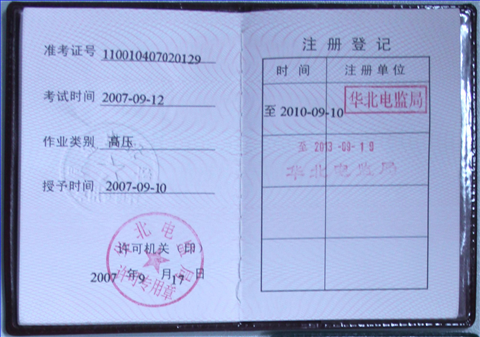 准考证号 110010407020129
考试时间 2007-09-12
作业类别 高压
授予时间 2007-09-10
华北电监局
许可专用章
许可机关(印)
2007 年9 月17 日
注册登记
时间 注册单位
至 2010-09-10 华北电监局
至 2013-09-19
华北电监局